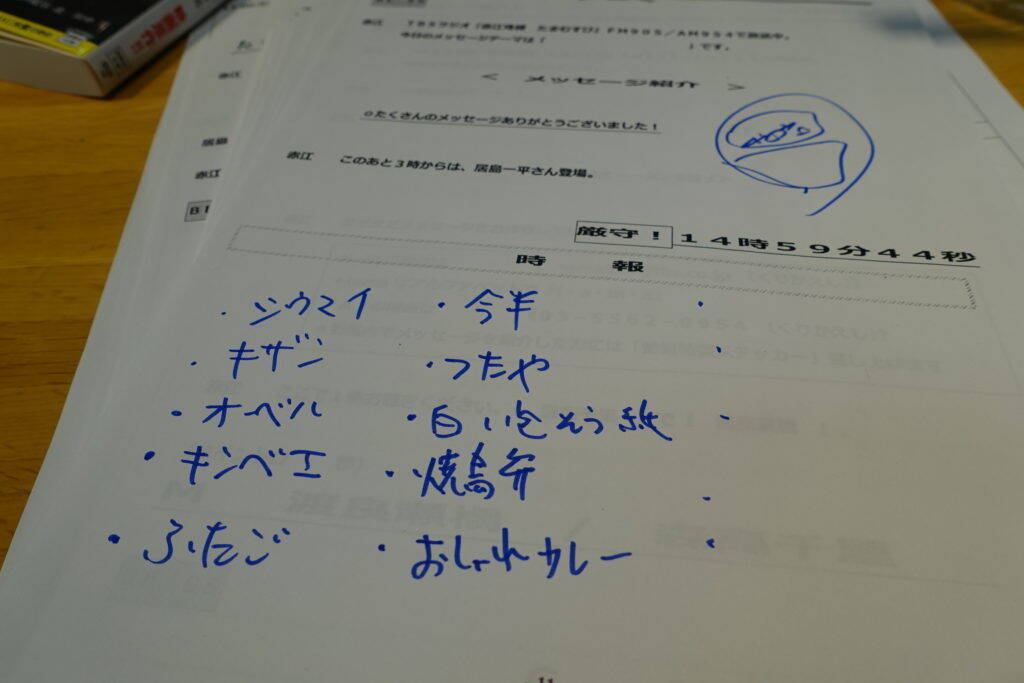 赤江 TBSラジオ「赤江珠緒 たまむすび」FM905/AM954で放送中。
今日のメッセージテーマは「 」です。
< メッセージ紹介 >
○たくさんのメッセージありがとうございました!
赤江 このあと3時からは、居島一平さん登場。
厳守! 14時59分44秒
時 報
・シウマイ ・今半 ・
・キザン ・つたや ・
・オーベル ・白い包そう紙 ・
・キンベエ ・焼鳥弁 ・
・ふたご ・おしゃれカレー ・
赤江
居島
赤江
11